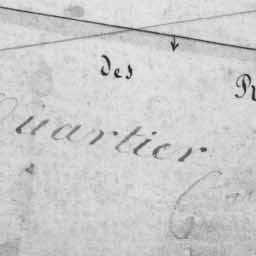 des
Quartier